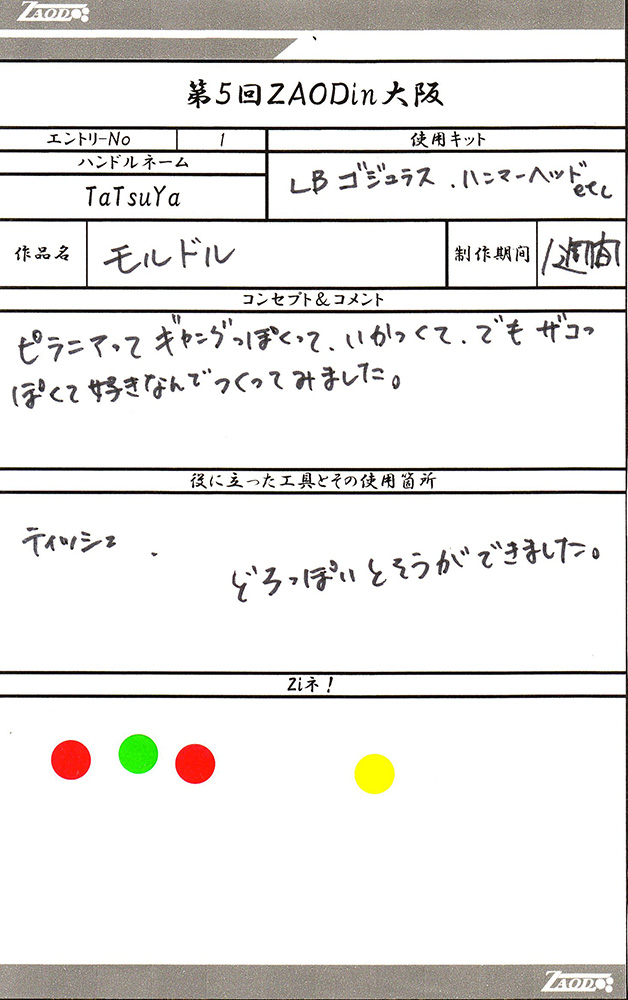 ZAOD
第5回ZAODin大阪
エントリーNo 1 使用キット
ハンドルネーム
TaTsuYa
LB ゴジュラス．ハンマーヘッド
etc
作品名 モルドル 制作期間 1週間
コンセプト&コメント
ピラニアって ギャングっぽくって、いかつくて、でも ザコっ
ぽくて好きなんでつくってみました。
役に立った工具とその使用箇所
ティッシュ．
どろっぽいとそうができました。
Ziネ！
ZAOD